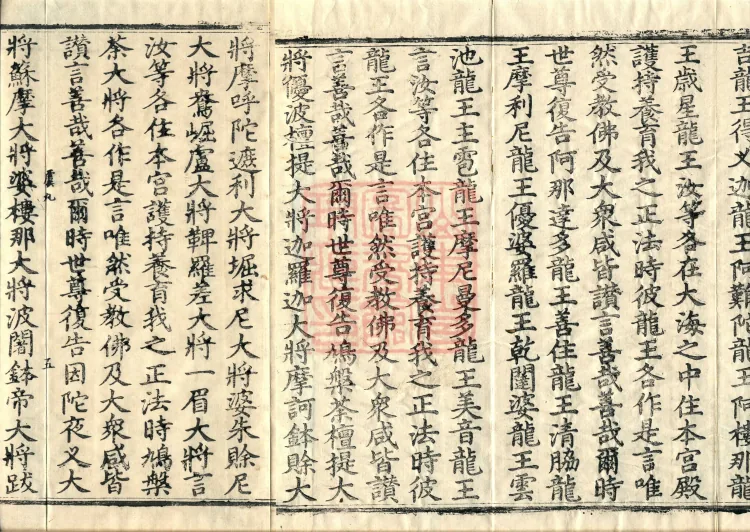 吉龍王得叉迦龍王阿難陀龍王阿樓那龍
王歲星龍王汝等各在大海之中住本宮殿
護持養育我之正法時彼龍王各作是言唯
然受教佛及大衆咸皆讃言善哉善哉爾時
世尊復告阿那達多龍王善住龍王清脇龍
王摩利尼龍王優婆羅龍王乾闥婆龍王雲
池龍王主雹龍王摩尼曼多龍王美音龍王
言汝等各住本宮護持養育我之正法時彼
龍王各作是言唯然受教佛及大衆咸皆讃
言善哉善哉爾時世尊復告鳩槃茶檀提大
將優波檀提大將迦羅迦大將摩訶鉢賒大
將摩呼陀遮利大將堀求尼大將婆朱賒尼
大將鴦崛盧大將鞞羅差大將一眉大將言
汝等各住本宮護持養育我之正法時鳩槃
茶大將各作是言唯然受教佛及大衆咸皆
讃言善哉善哉爾時世尊復告因陀夜叉大
虞九
五
將蘇摩大將婆樓那大將波闍鉢帝大將跋